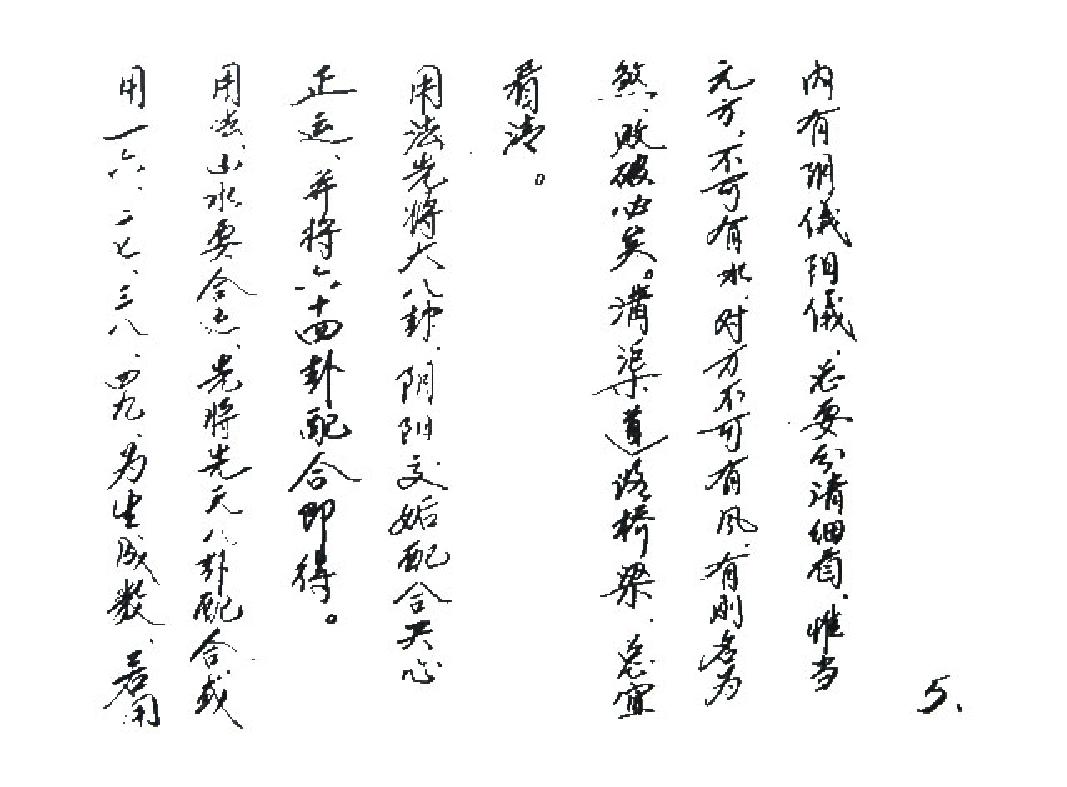 5.
内有阴儀阳儀、总要分清细看、惟当
元方、不可有水、对方不可有风、有则名为
煞、败破必矣。溝渠道路桥梁、总宜
看清。
用法先将大八卦、阴阳交姤配合天心
正运、并将六十四卦配合即得。
用法、山水要合运、先将先天八卦配合或
用一六、二七、三八、四九、为生成数、若用